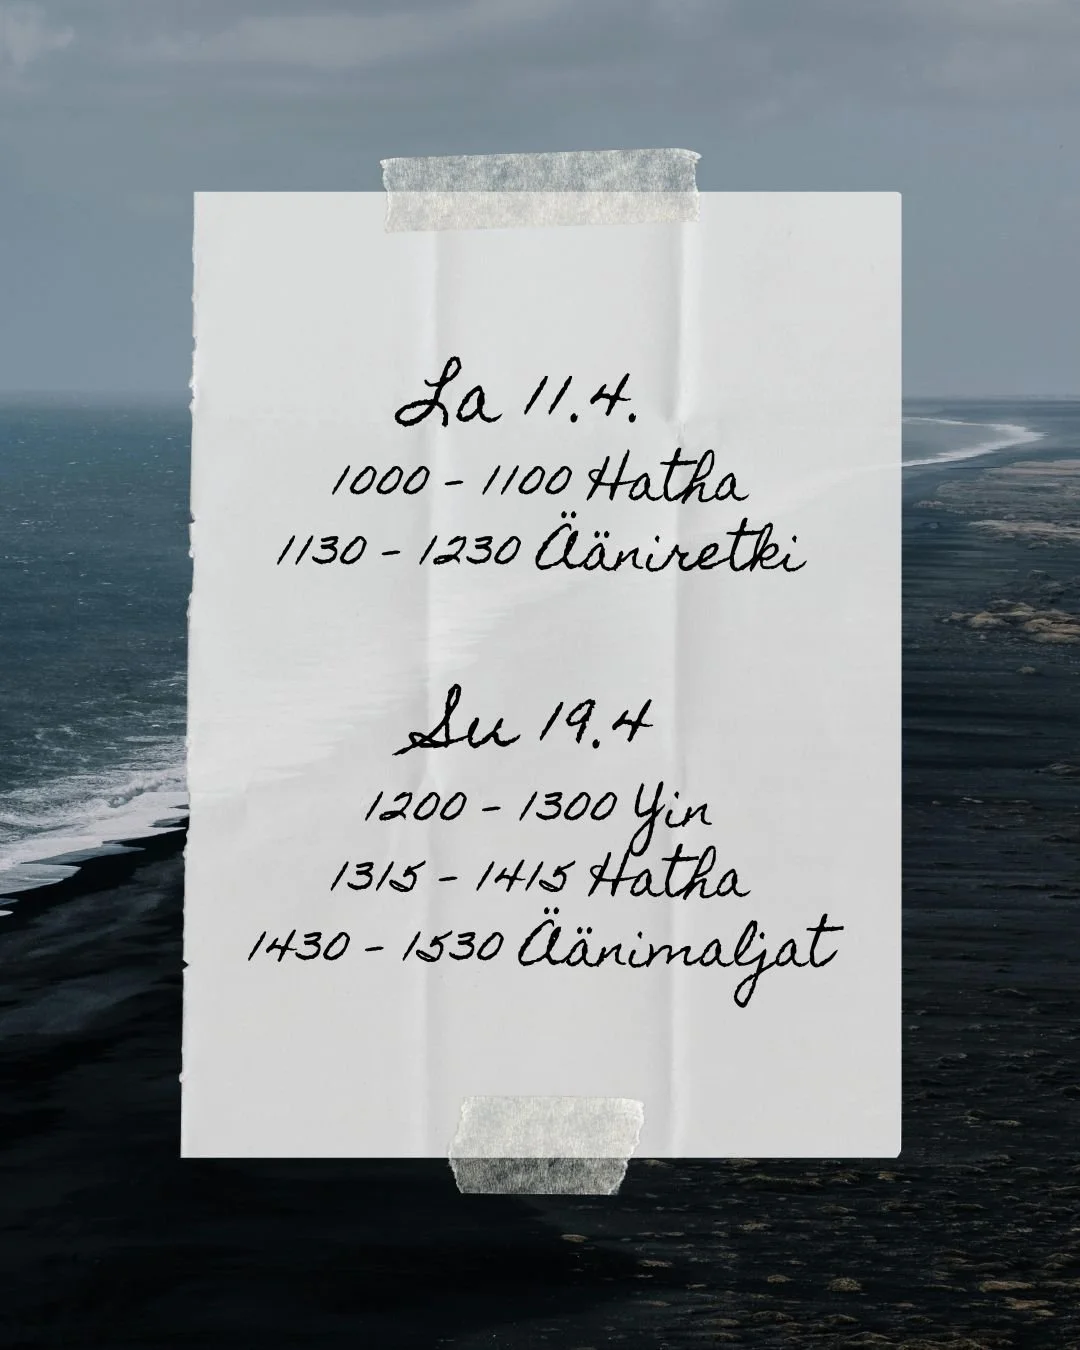 La 11.4.
1000 - 1100 Hatha
1130 - 1230 Ääniretki
Su 19.4
1200 - 1300 Yin
1315 - 1415 Hatha
1430 - 1530 Äänimaljat